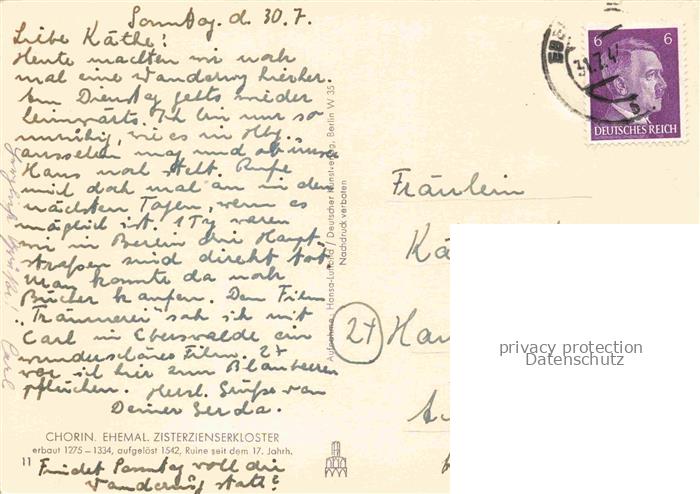 Sonntag, d. 30.7.
Liebe Käthe!
Heute machten wir noch
mal eine Wanderung hierher.
Am Dienstag gehts wieder
heimwärts. Ich bin nur so
unruhig, wie es in Hbg.
aussehen mag und ob unser
Haus noch steht. Rufe
mich doch mal an in den
nächsten Tagen, wenn es
möglich ist. 1 Tg waren
wir in Berlin die Haupt-
straßen sind direkt tot.
Man konnte da noch
Bücher kaufen. Den Film
„Träumerei" sah ich mit
Carl in Eberswalde ein
wunderschöner Film. 2x
war ich hier zum Blaubeeren
pflücken. Herzl. Grüße von
Deiner Gerda.
Herzliche Grüße! Carl
CHORIN. EHEMAL. ZISTERZIENSERKLOSTER
erbaut 1275–1334, aufgelöst 1542, Ruine seit dem 17. Jahrh.
11 Findet Sonntag wohl die
Wanderung statt?
Aufnahme: Hansa-Luftbild / Deutscher Kunstverlag, Berlin W 35
Nachdruck verboten
6 6
DEUTSCHES REICH
Fräulein
Kä
24 Ham
privacy protection
Datenschutz